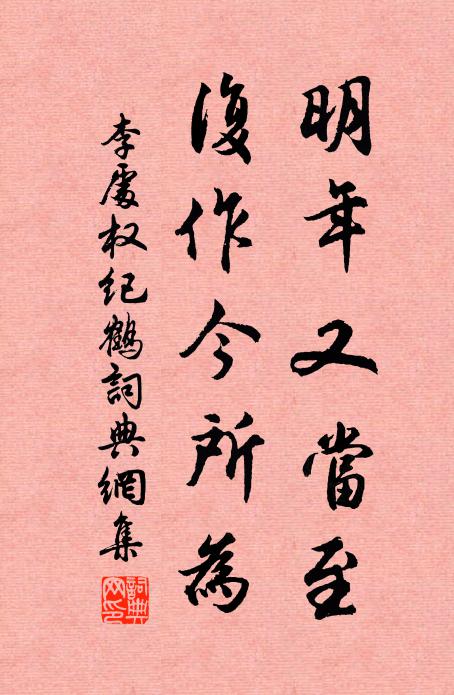 明年又當至
復作今所為
李處权紀鶴詞典網集
詞典網印